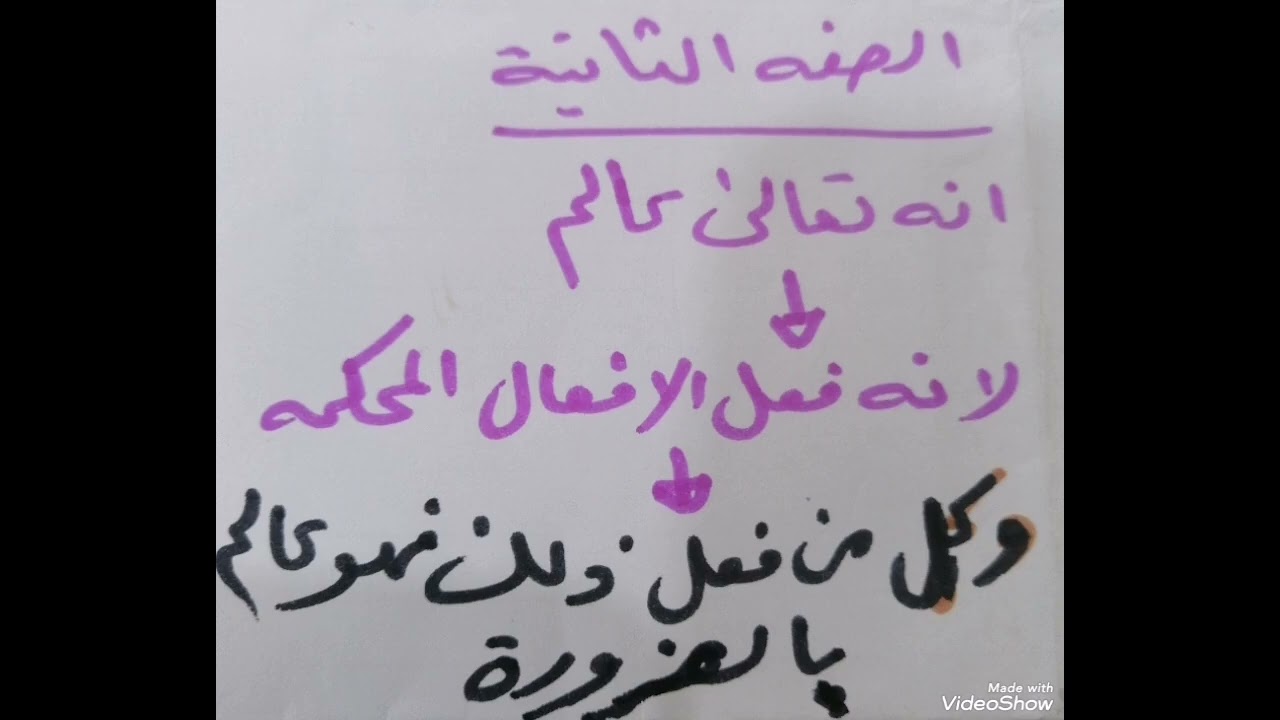 الصفه الثانية
انه تعالى عالم
لانه فعل الافعال المحكمه
وكل من فعل ذلك فهو عالم
بالضرورة
Made with
VideoShow